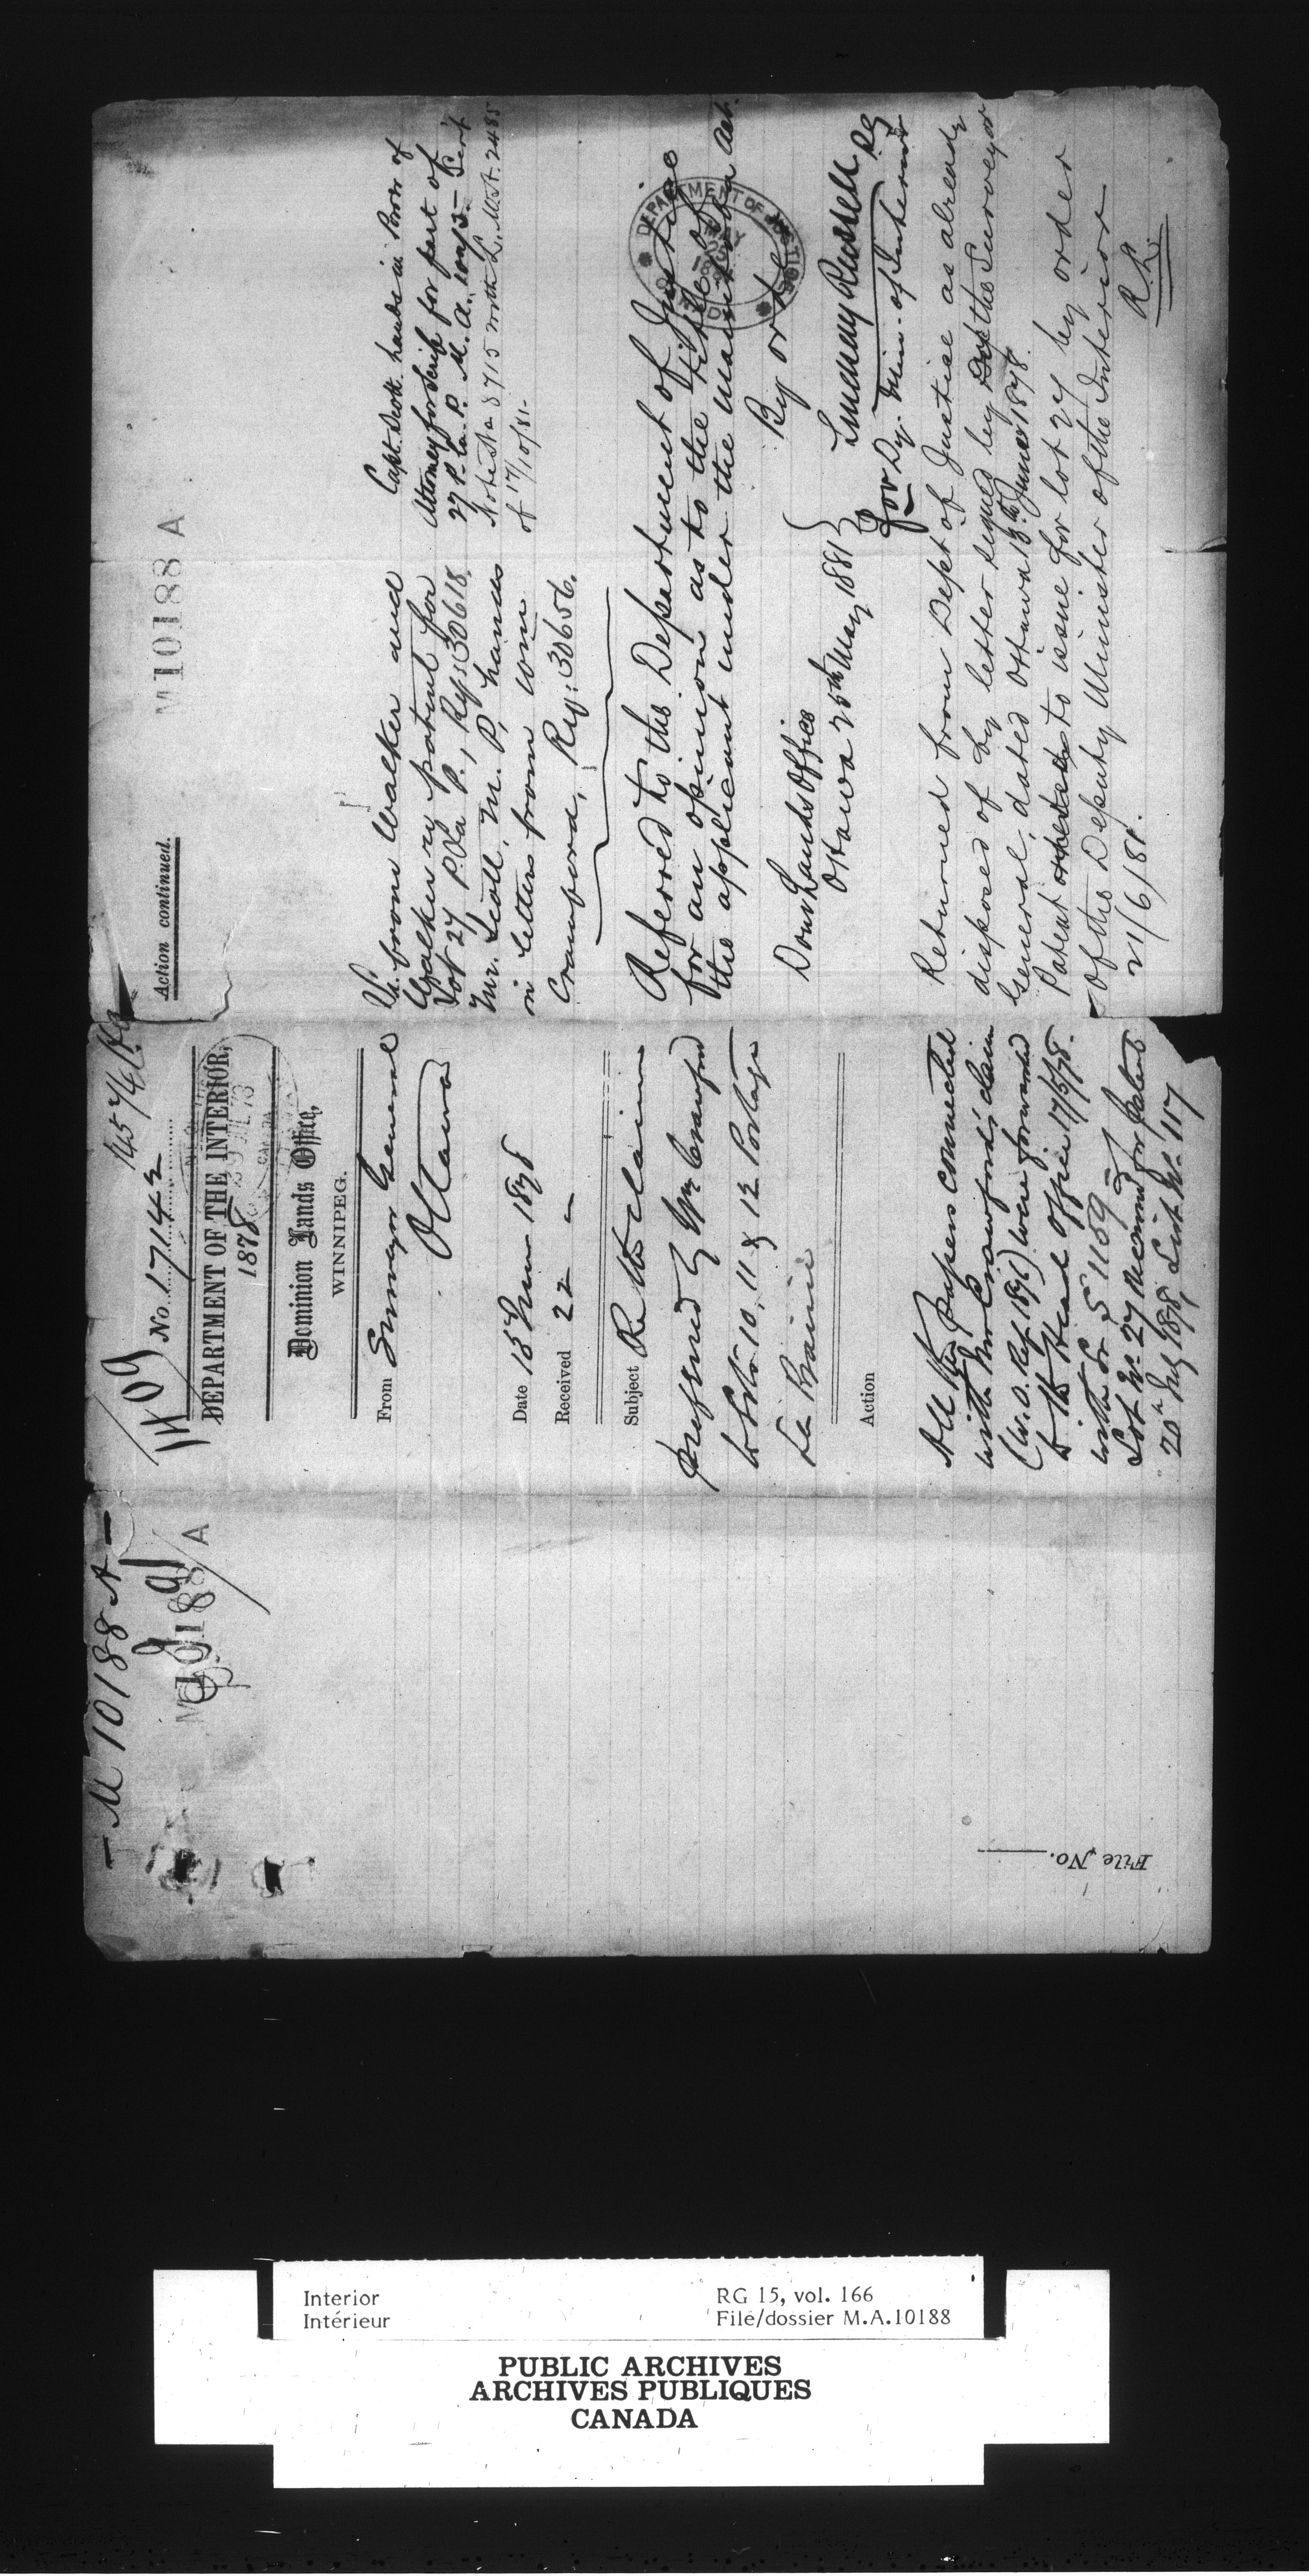 — M 10188 A —
M10188 A
File No.
1109
14574
No. 17142
DEPARTMENT OF THE INTERIOR,
1878
Dominion Lands Office,
WINNIPEG.
From Surveyor General
Ottawa
Date 15 June 1878
Received 22 "
Subject Re the claim
preferred by Wm Crawford
to lots 10, 11 & 12 Portage
La Prairie
Action
All the papers connected
with Wm Crawford's claim
(W.O. Ref. 1891) were forwarded
to the Head Office 17/5/78.
with Lr. S 1169
Lot No 27 recomd for patent
20th July 1878, List No 117
Action continued.
M10188 A
from Walker and
Walker re patent for
Lot 27 P. La P., Ref: 30618
Mr. Scott, M. P., hands
in letter from Wm
Crawford, Ref: 30656.
Capt. Scott hands in Power of
Attorney for Scrip for part of
27 P. La P. M. A.
Note to a 8715 with L. M.A. 2485
of 17/10/81-
Referred to the Department of Justice
for an opinion as to the title of
the applicant under the Manitoba Act.
By order
Lindsay Russell
for Dy. Min. of Interior
Dom Lands Office
Ottawa 25th May 1881
DEPARTMENT OF JUSTICE
MAY
Returned from Dept of Justice as already
disposed of by letter signed by Dep the Surveyor
General, dated Ottawa 15th June 1878.
Patent ordered to issue for lot 27 by order
of the Deputy Minister of the Interior
21/6/81.
R.R.
Interior
Intérieur
RG 15, vol. 166
File/dossier M.A.10188
PUBLIC ARCHIVES
ARCHIVES PUBLIQUES
CANADA